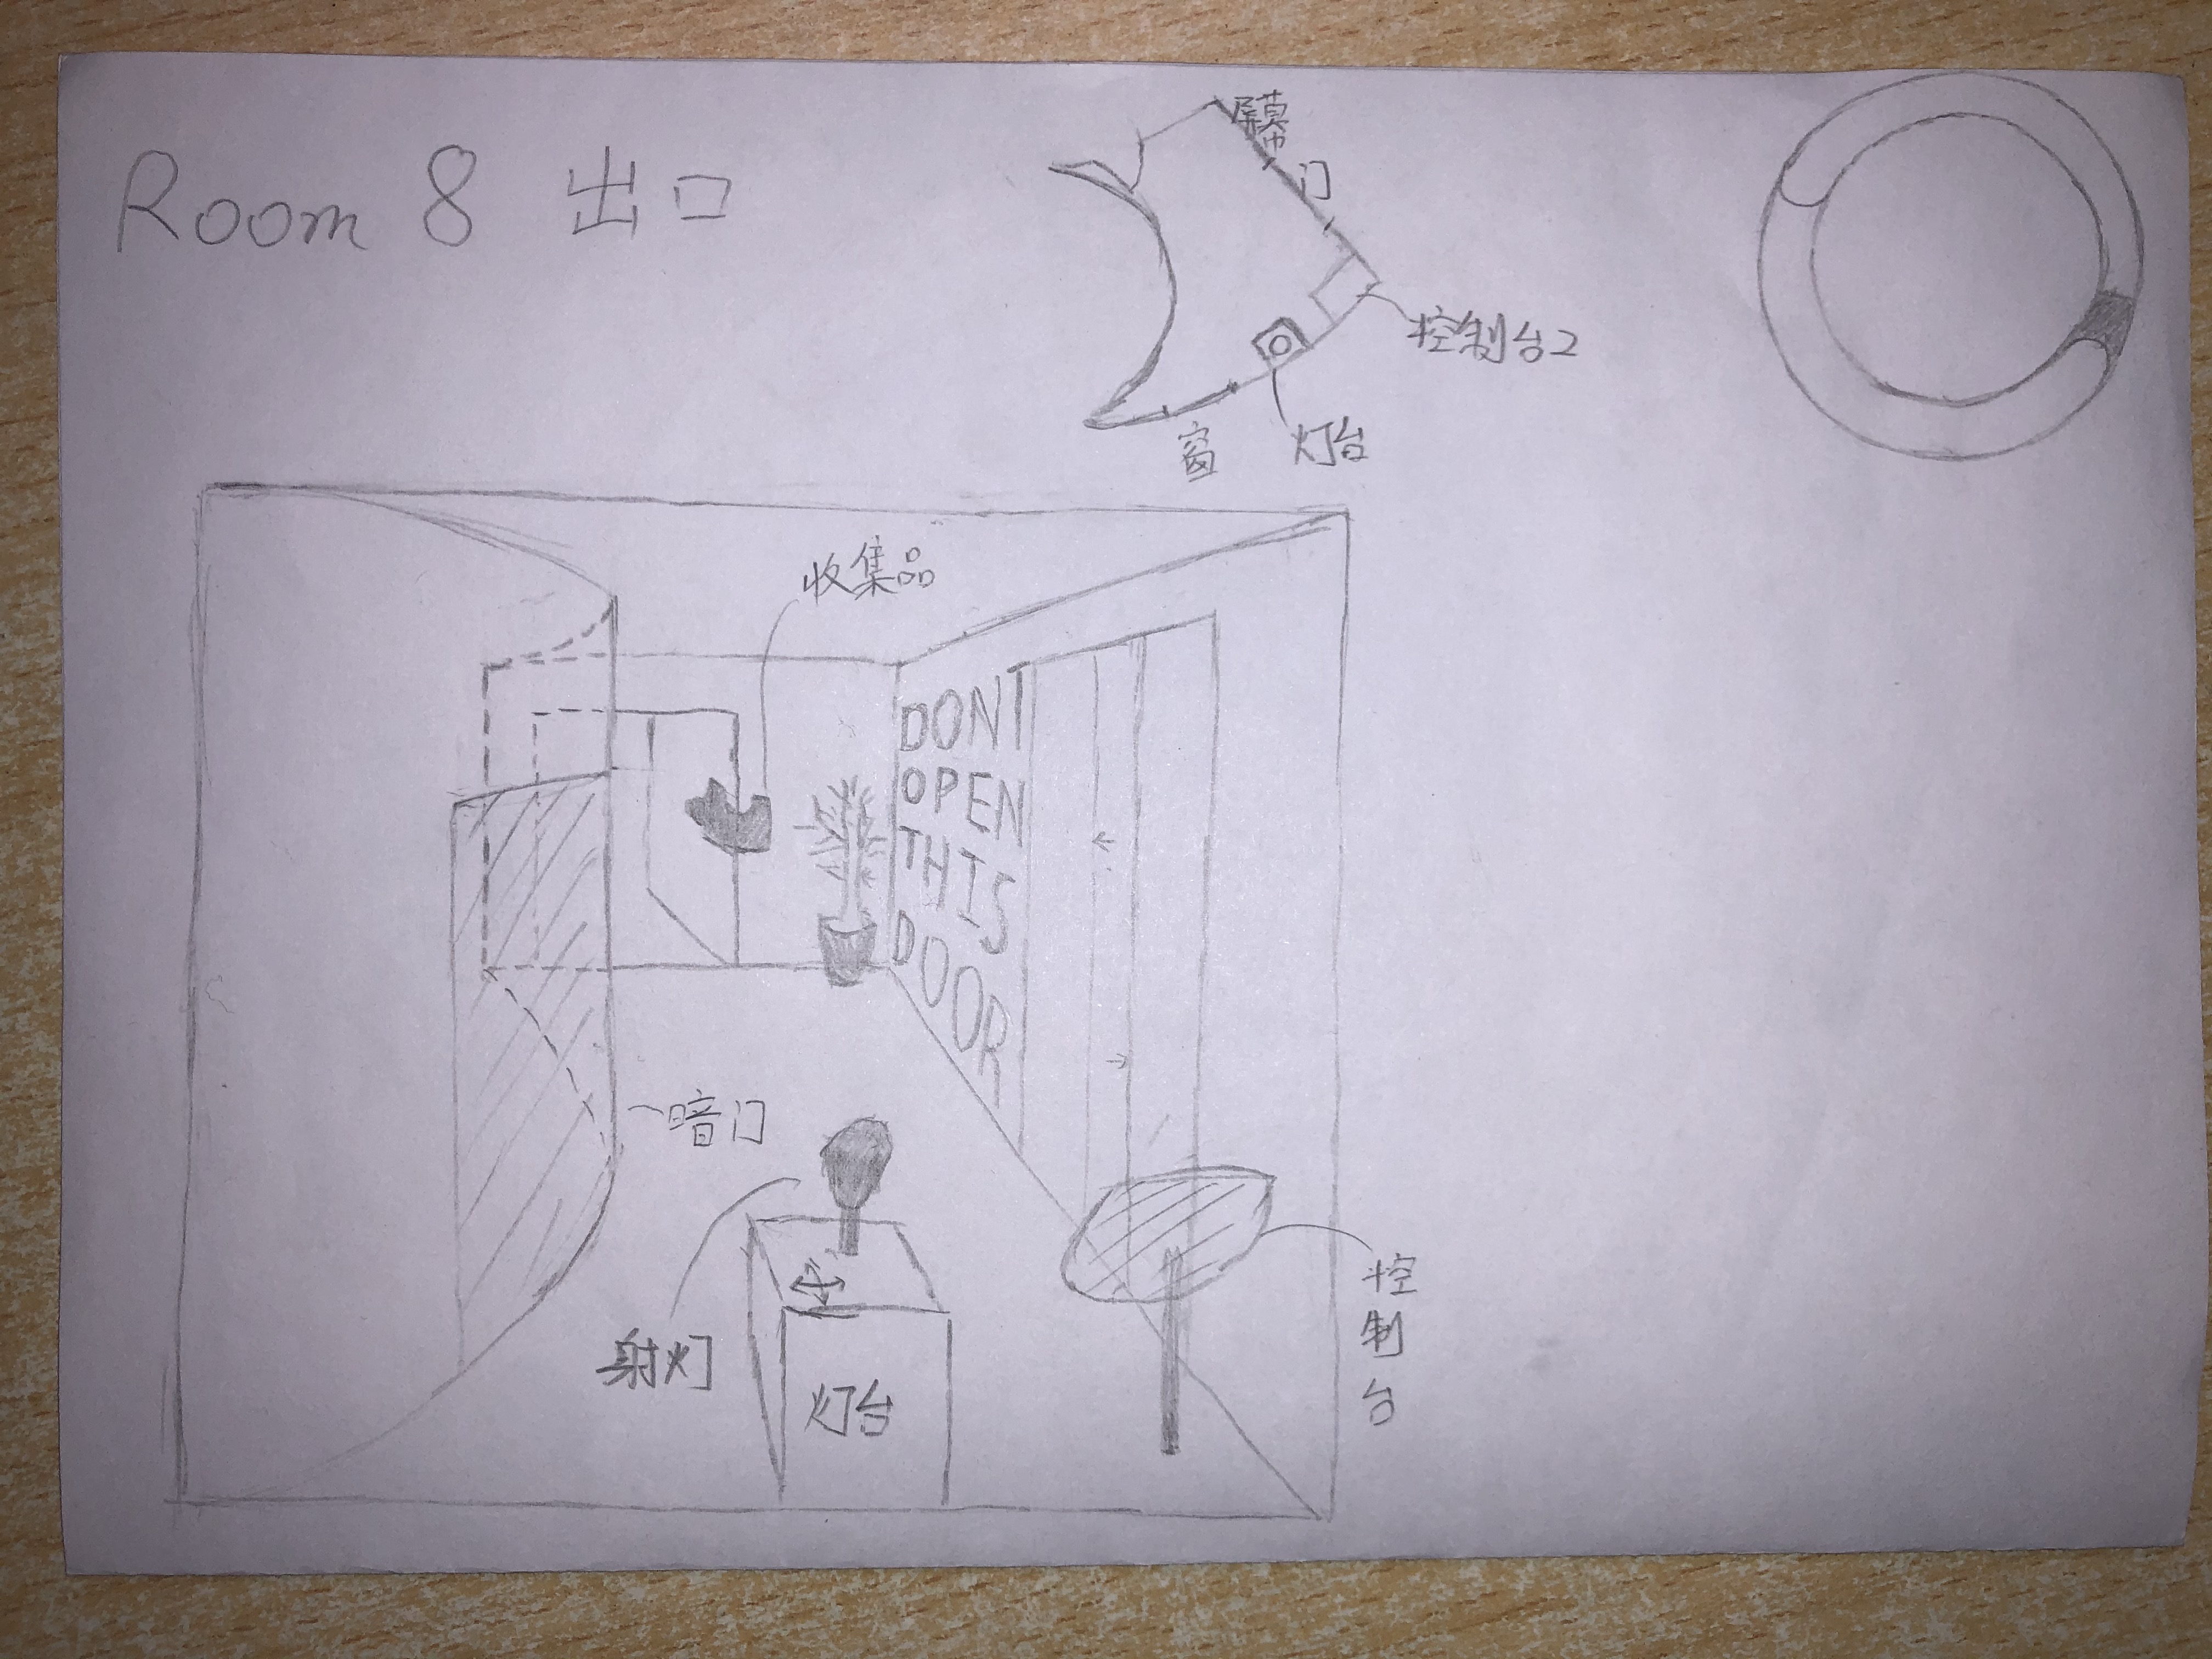 Room 8 出口
屏幕
门
控制台2
灯台
窗
收集品
DONT
OPEN
THIS
DOOR
暗门
射灯
灯台
控制台